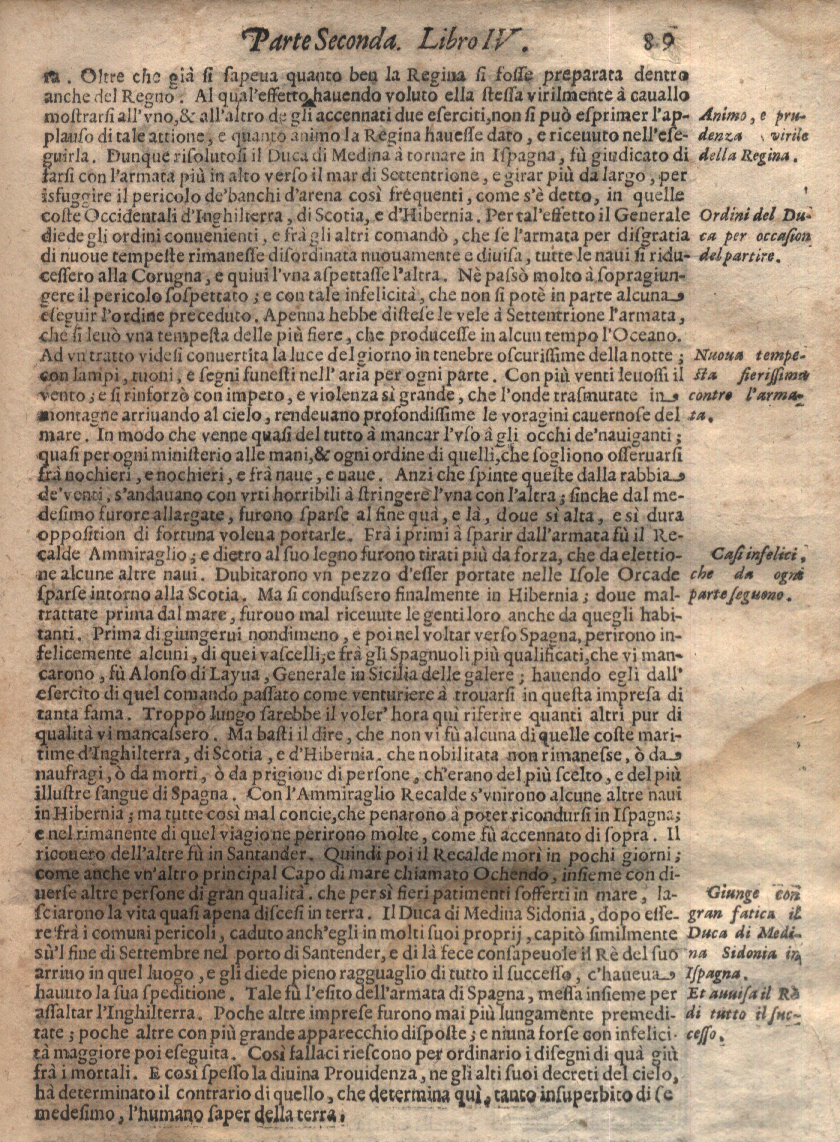 Parte Seconda. Libro IV. 89
ra. Oltre che già si sapeua quanto ben la Regina si fosse preparata dentro
anche del Regno. Al qual'effetto hauendo voluto ella stessa virilmente à cauallo
mostrarsi all'vno,& all'altro de gli accennati due eserciti,non si può esprimer l'ap-
plauso di tale attione, e quanto animo la Regina hauesse dato, e riceuuto nell'ese-
guirla. Dunque risolutosi il Duca di Medina à tornare in Ispagna, fù giudicato di
farsi con l'armata più in alto verso il mar di Settentrione, e girar più da largo, per
isfuggire il pericolo de'banchi d'arena così frequenti, come s'è detto, in quelle
coste Occidentali d'Inghilterra, di Scotia, e d'Hibernia. Per tal'effetto il Generale
diede gli ordini conuenienti, e frà gli altri comandò, che se l'armata per disgratia
di nuoue tempeste rimanesse disordinata nuouamente e diuisa, tutte le naui si ridu-
cessero alla Corugna, e quiui l'vna aspettasse l'altra. Nè passò molto à sopragiun-
gere il pericolo sospettato; e con tale infelicità, che non si potè in parte alcuna
eseguir l'ordine preceduto. Apenna hebbe distese le vele à Settentrione l'armata,
che si leuò vna tempesta delle più fiere, che producesse in alcun tempo l'Oceano.
Ad vn tratto videsi conuertita la luce del giorno in tenebre oscurissime della notte;
con lampi, tuoni, e segni funesti nell'aria per ogni parte. Con più venti leuossi il
vento; e si rinforzò con impeto, e violenza sì grande, che l'onde trasmutate in
montagne arriuando al cielo, rendeuano profondissime le voragini cauernose del
mare. In modo che venne quasi del tutto à mancar l'vso à gli occhi de'nauiganti;
quasi per ogni ministerio alle mani,& ogni ordine di quelli,che sogliono osseruarsi
frà nochieri, e nochieri, e frà naue, e naue. Anzi che spinte queste dalla rabbia
de'venti, s'andauano con vrti horribili à stringere l'vna con l'altra; sinche dal me-
desimo furore allargate, furono sparse al fine quà, e là, doue sì alta, e sì dura
opposition di fortuna voleua portarle. Frà i primi à sparir dall'armata fù il Re-
calde Ammiraglio; e dietro al suo legno furono tirati più da forza, che da elettio-
ne alcune altre naui. Dubitarono vn pezzo d'esser portate nelle Isole Orcade
sparse intorno alla Scotia. Ma si condussero finalmente in Hibernia; doue mal-
trattate prima dal mare, furono mal riceuute le genti loro anche da quegli habi-
tanti. Prima di giungerui nondimeno, e poi nel voltar verso Spagna, perirono in-
felicemente alcuni, di quei vascelli;e frà gli Spagnuoli più qualificati,che vi man-
carono, fù Alonso di Layua, Generale in Sicilia delle galere; hauendo egli dall'
esercito di quel comando passato come venturiere à trouarsi in questa impresa di
tanta fama. Troppo lungo sarebbe il voler'hora quì riferire quanti altri pur di
qualità vi mancassero. Ma basti il dire, che non vi fù alcuna di quelle coste mari-
time d'Inghilterra, di Scotia, e d'Hibernia. che nobilitata non rimanesse, ò da
naufragi, ò da morti, ò da prigione di persone, ch'erano del più scelto, e del più
illustre sangue di Spagna. Con l'Ammiraglio Recalde s'vnirono alcune altre naui
in Hibernia; ma tutte così mal concie,che penarono à poter ricondursi in Ispagna;
e nel rimanente di quel viagione perirono molte, come fù accennato di sopra. Il
ricouero dell'altre fù in Santander. Quindi poi il Recalde morì in pochi giorni;
come anche vn'altro principal Capo di mare chiamato Ochendo, insieme con di-
uerse altre persone di gran qualità. che per sì fieri patimenti sofferti in mare, la-
sciarono la vita quasi apena discesi in terra. Il Duca di Medina Sidonia, dopo esse-
re frà i comuni pericoli, caduto anch'egli in molti suoi proprij, capitò similmente
sù'l fine di Settembre nel porto di Santender, e di là fece consapeuole il Rè del suo
arriuo in quel luogo, e gli diede pieno ragguaglio di tutto il successo, c'haueua
hauuto la sua speditione. Tale fù l'esito dell'armata di Spagna, messa insieme per
assaltar l'Inghilterra. Poche altre imprese furono mai più lungamente premedi-
tate; poche altre con più grande apparecchio disposte; e niuna forse con infelici-
tà maggiore poi eseguita. Così fallaci riescono per ordinario i disegni di quà giù
frà i mortali. E così spesso la diuina Prouidenza, ne gli alti suoi decreti del cielo,
hà determinato il contrario di quello, che determina quì, tanto insuperbito di se
medesimo, l'humano saper della terra.
Animo, e pru-
denza virile
della Regina.
Ordini del Du-
ca per occasion
del partire.
Nuoua tempe-
sta fierissima
contro l'arma-
ta.
Casi infelici,
che da ogni
parte seguono.
Giunge con
gran fatica il
Duca di Medi-
na Sidonia in
Ispagna.
Et auuisa il Rè
di tutto il suc-
cesso.